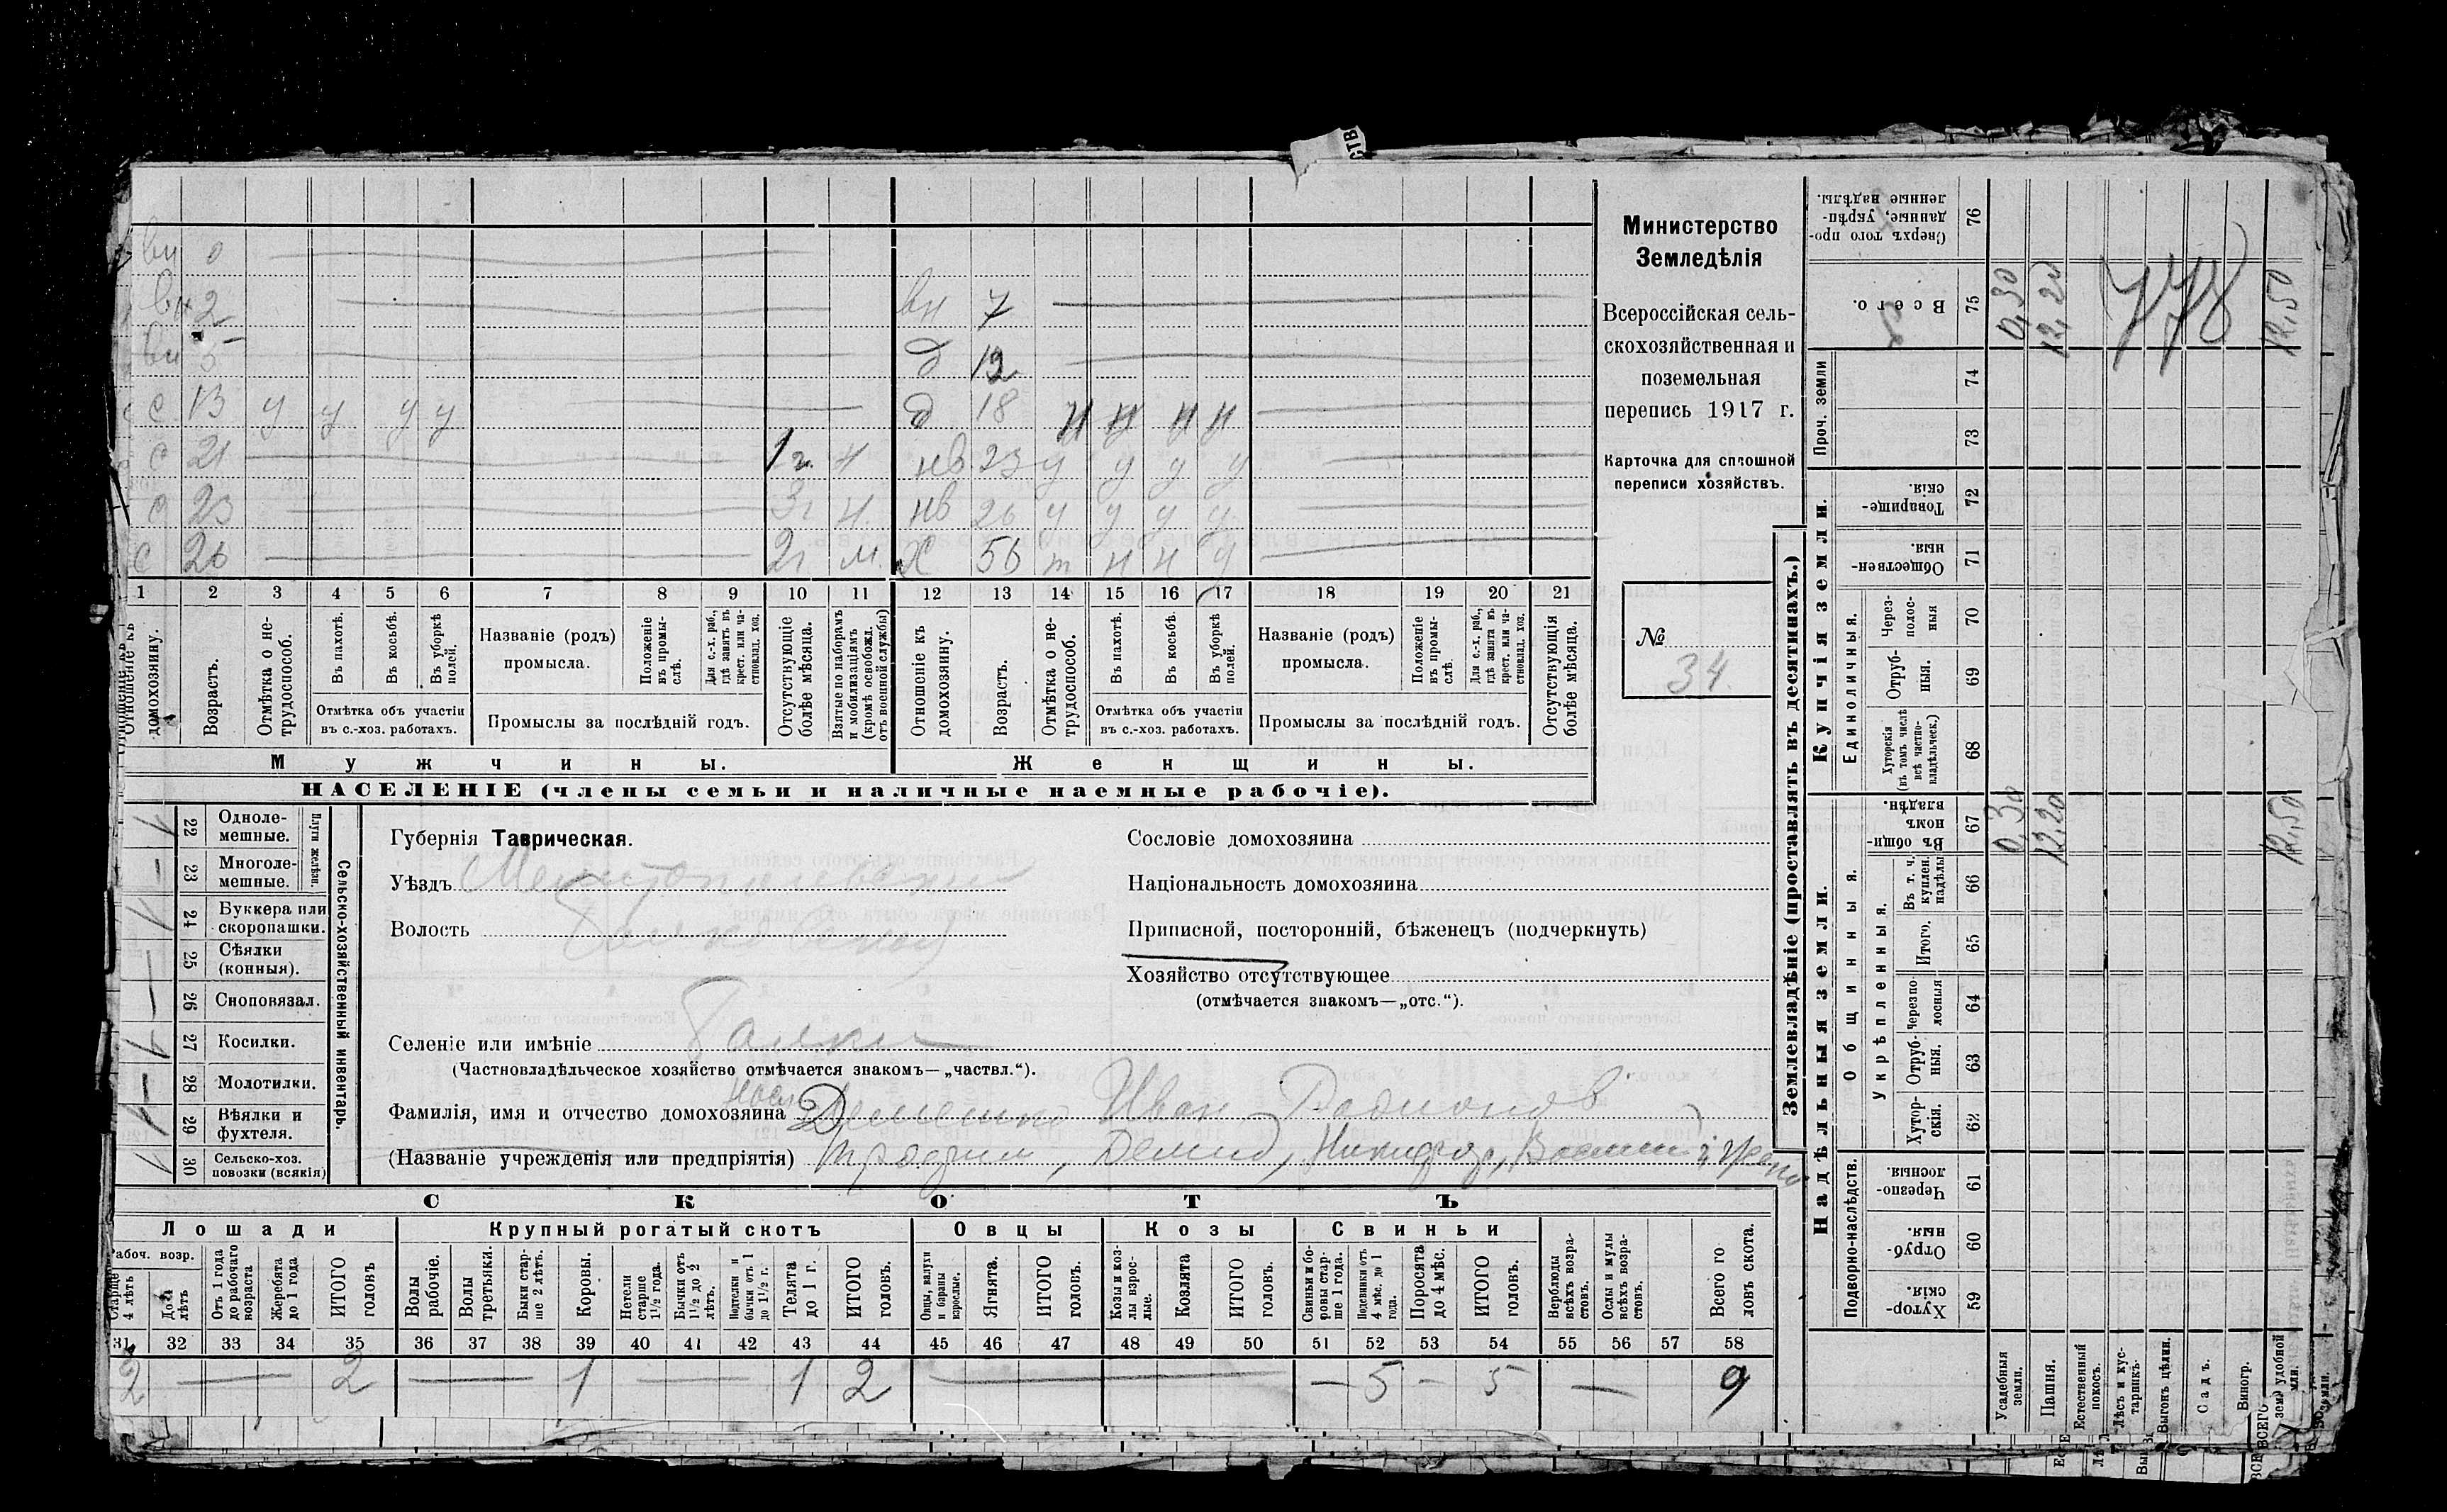 СТВ
вн 0
вн 2 вн 7
вн 5 д 12
с 13 у у у у д 18 н н н н
с 21 1 г. н нв 23 у у у у
с 23 3 г н. нв 26 у у у у
с 26 2 г м. ж 56 т н н у
1 2 3 4 5 6 7 8 9 10 11 12 13 14 15 16 17 18 19 20 21
Отношеніе къ домохозяину.
Возрастъ.
Отмѣтка о не-трудоспособ.
Въ пахотѣ.
Въ косьбѣ.
Въ уборкѣ полей.
Отмѣтка объ участіи въ с.-хоз. работахъ.
Названіе (родъ) промысла.
Положеніе въ промы-слѣ.
Для с.-х. раб., гдѣ занятъ въ крест. или ча-стновлад. хоз.
Промыслы за послѣдній годъ.
Отсутствующіе болѣе мѣсяца.
Взятые по наборамъ и мобилизаціямъ (кромѣ освобожд. отъ военной службы)
Отношеніе къ домохозяину.
Возрастъ.
Отмѣтка о не-трудоспособ.
Въ пахотѣ.
Въ косьбѣ.
Въ уборкѣ полей.
Отмѣтка объ участіи въ с.-хоз. работахъ.
Названіе (родъ) промысла.
Положеніе въ промы-слѣ.
Для с.-х. раб., гдѣ занята въ крест. или ча-стновлад. хоз.
Промыслы за послѣдній годъ.
Отсутствующія болѣе мѣсяца.
Мужчины. Женщины.
НАСЕЛЕНІЕ (члены семьи и наличные наемные рабочіе).
Министерство
Земледѣлія
Всероссійская сель-
скохозяйственная и
поземельная
перепись 1917 г.
Карточка для сплошной
переписи хозяйствъ.
№
34.
22 Одноле-мешные.
23 Многоле-мешные.
Плуги желѣзн.
24 Буккера или скоропашки.
25 Сѣялки (конныя).
26 Сноповязал.
27 Косилки.
28 Молотилки.
29 Вѣялки и фухтеля.
30 Сельско-хоз. повозки (всякія)
Сельско-хозяйственный инвентарь.
Губернія Таврическая.
Уѣздъ Мелитопольскій
Волость
Селеніе или имѣніе
(Частновладѣльческое хозяйство отмѣчается знакомъ—„частвл.“).
Фамилія, имя и отчество домохозяина Иван Родионов
(Названіе учрежденія или предпріятія) Трофим, Демид, Никифор,
Сословіе домохозяина
Національность домохозяина
Приписной, посторонній, бѣженецъ (подчеркнуть)
Хозяйство отсутствующее
(отмѣчается знакомъ—„отс.“).
СКОТЪ
Лошади Крупный рогатый скотъ Овцы Козы Свиньи
Рабоч. возр.
Старше 4 лѣтъ
До 4 лѣтъ
Отъ 1 года до рабочаго возраста
Жеребята до 1 года
ИТОГО головъ
Волы рабочіе.
Волы третьяки.
Быки стар-ше 2 лѣтъ.
Коровы.
Нетели старше 1½ года.
Бычки отъ 1½ до 2 лѣтъ.
Подтелки и бычки отъ 1 до 1½ г.
Телята до 1 г.
ИТОГО головъ.
Овцы, валухи и бараны взрослые.
Ягнята.
ИТОГО головъ.
Козы и коз-лы взрос-лые.
Козлята
ИТОГО головъ.
Свиньи и бо-ровы стар-ше 1 года.
Подсвинки отъ 4 мѣс. до 1 года.
Поросята до 4 мѣс.
ИТОГО головъ.
Верблюды всѣхъ возра-стовъ.
Ослы и мулы всѣхъ возра-стовъ.
Всего го ловъ скота.
31 32 33 34 35 36 37 38 39 40 41 42 43 44 45 46 47 48 49 50 51 52 53 54 55 56 57 58
2 — — 2 — 1 — 1 2 — — 5 — 5 — 9
Землевладѣніе (проставлять въ десятинахъ.)
Надѣльныя земли. Купчія земли.
Подворно-наслѣдств.
Общинныя.
Укрѣпленныя.
Единоличныя.
Проч. земли
Сверхъ того про-данные, укрѣп-ленные надѣлы. 76
Всего. 75 0,30 12,20 12,50
778
74
73
Товарище-скія. 72
Обществен-ныя. 71
Через-полос-ныя 70
Отруб-ныя. 69
Хуторскія (въ томъ числѣ всѣ частно-владѣльческ.) 68
Въ общи-номъ владѣн. 67 0,30 12,20 12,50
Въ т. ч. куплен. надѣлы 66
Итого. 65
Черезпо-лосныя 64
Отруб-ныя. 63
Хутор-скія. 62
Черезпо-лосныя. 61
Отруб-ныя. 60
Хутор-скія. 59
Усадебныя земли.
Пашня.
Естественный покосъ.
Лѣсъ и кус-тарникъ.
Выгонъ цѣлин.
Садъ.
Виногр.
ВСЕГО удобной земли.